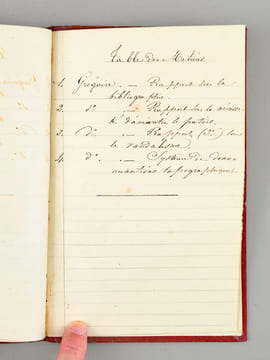 Table des Matières.
1. Grégoire. — Rapport sur la
bibliographie.
2. do. — Rapport sur la nécessi-
té d'anéantir le patois.
3. Do. — Rapport (3e) sur
le vandalisme.
4. do. — Système de déno-
minations topographiques.